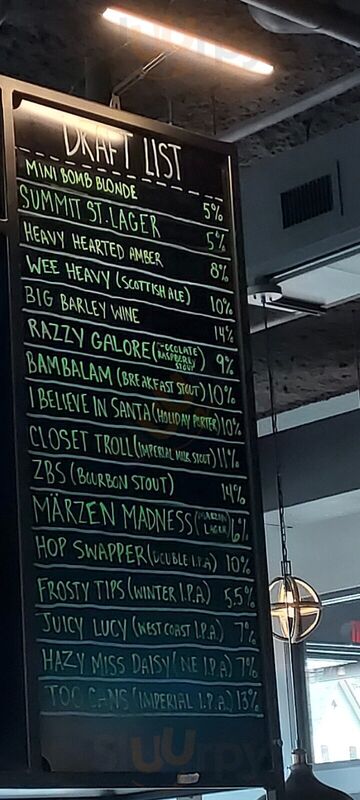 DRAFT LIST
MINI BOMB BLONDE 5%
SUMMIT ST. LAGER 5%
HEAVY HEARTED AMBER 8%
WEE HEAVY (SCOTTISH ALE) 10%
BIG BARLEY WINE 14%
RAZZY GALORE (CHOCOLATE RASPBERRY STOUT) 9%
BAMBALAM (BREAKFAST STOUT) 10%
I BELIEVE IN SANTA (HOLIDAY PORTER) 10%
CLOSET TROLL (IMPERIAL MILK STOUT) 11%
ZBS (BOURBON STOUT) 14%
MÄRZEN MADNESS (MARZEN LAGER) 6%
HOP SWAPPER (DOUBLE I.P.A) 10%
FROSTY TIPS (WINTER I.P.A) 5.5%
JUICY LUCY (WEST COAST I.P.A.) 7%
HAZY MISS DAISY (NE I.P.A) 7%
TOO CANS (IMPERIAL I.P.A.) 13%